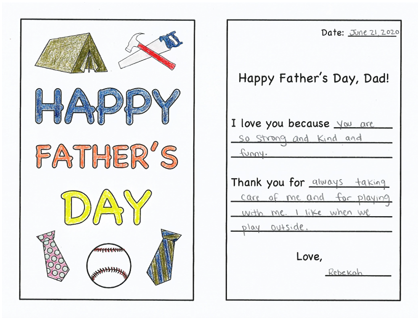 HAPPY
FATHER'S
DAY
Date: June 21, 2020
Happy Father's Day, Dad!
I love you because you are
so strong and kind and
funny.
Thank you for always taking
care of me and for playing
with me. I like when we
play outside.
Love,
Rebekah